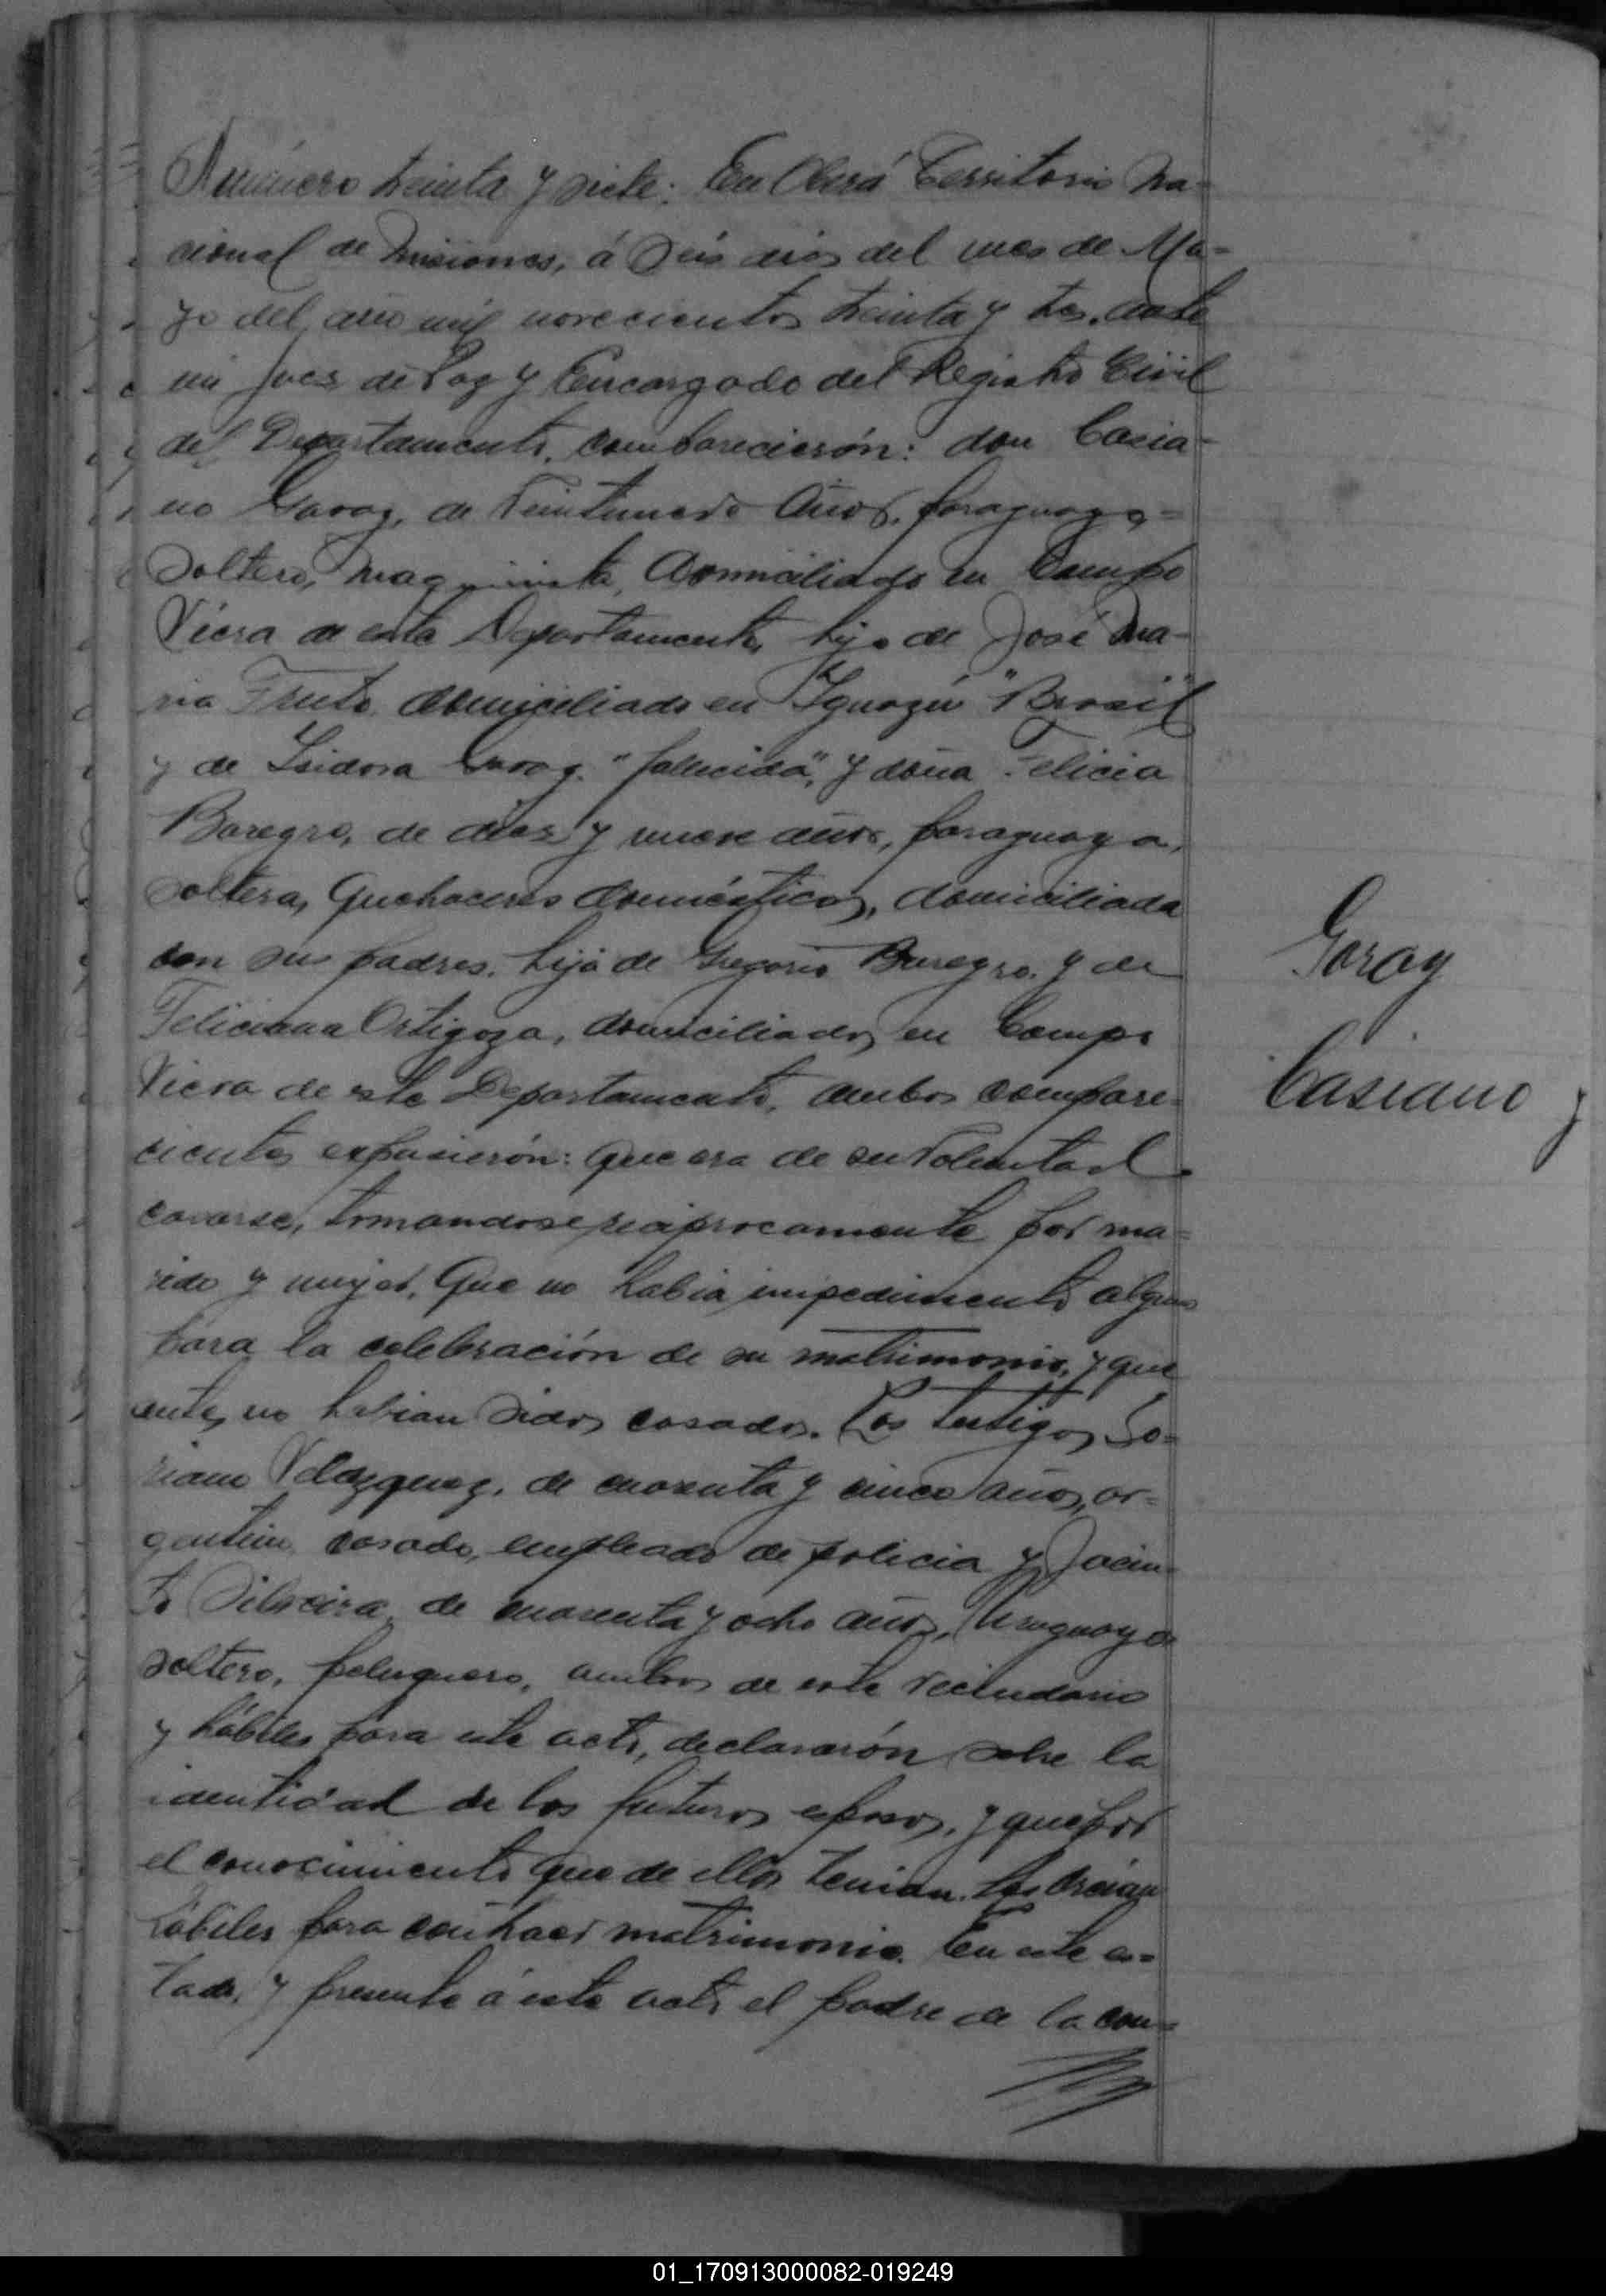 Número treinta y siete: En Oberá Territorio Na=
cional de Misiones, á Seis dias del mes de Ma=
yo del año mil novecientos treinta y tres, ante
mi Juez de Paz y Encargado del Registro Civil
del Departamento, comparecierón: don Casia-
no Garay, de años, paraguayo,=
Soltero, maquinista, domiciliado en Campo
Viera de este Departamento, hijo de José Ma-
ria domiciliado en Iguazú "Brasil"
y de Isidora Garay "fallecida", y doña Felicia
de diez y nueve años, paraguaya,
soltera, quehaceres domésticos, domiciliada
con sus padres, hija de Gregorio y de
Feliciana Ortigoza, domiciliados en Campo
Viera de este Departamento, ambos compare=
cientes expusierón: que era de su voluntad
casarse, tomandose reciprocamente por ma=
rido y mujer, Que no habia impedimento alguno
para la celebración de su matrimonio, y que
antes no habian sidos casados. Los testigos So=
riano Velazquez, de cuarenta y cinco años, ar=
gentino, casado, empleado de policia y Jacin-
to Silveira, de cuarenta y ocho años, Uruguayo
soltero, peluquero, ambos de este vecindario
y hábiles para este acto, declararón sobre la
identidad de los futuros esposos, y que por
el conocimiento que de ellos tenian, los creían
hábiles para contraer matrimonio. En este es=
tado, y presente á este acto el padre de la con=
Garay
Casiano y
01_170913000082-019249